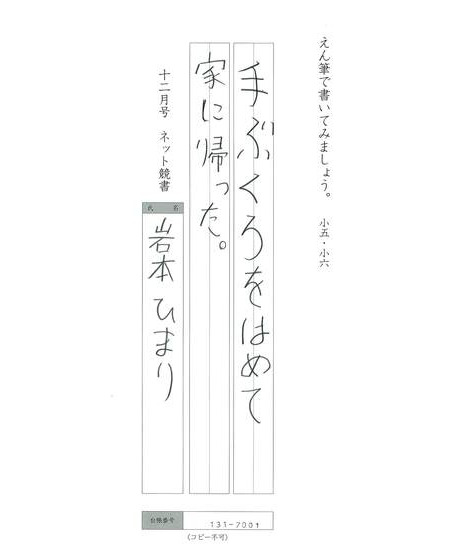 えん筆で書いてみましょう。 小五・小六
手ぶくろをはめて
家に帰った。
十二月号 ネット競書
氏名
岩本ひまり
台帳番号 131-7001
(コピー不可)